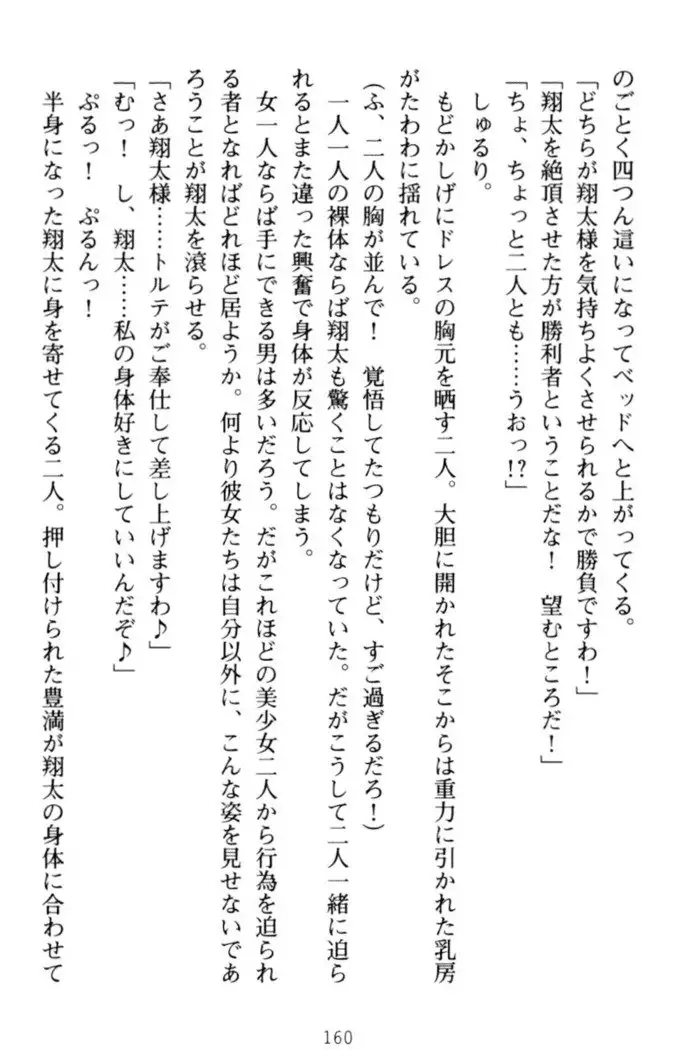 のごとく四つん這いになってベッドへと上がってくる。
「どちらが翔太様を気持ちよくさせられるかで勝負ですわ！」
「翔太を絶頂させた方が勝利者ということだな！　望むところだ！」
「ちょ、ちょっと二人とも……うおっ!?」
しゅるり。
もどかしげにドレスの胸元を晒す二人。大胆に開かれたそこからは重力に引かれた乳房
がたわわに揺れている。
(ふ、二人の胸が並んで！　覚悟してたつもりだけど、すご過ぎるだろ！)
一人一人の裸体ならば翔太も驚くことはなくなっていた。だがこうして二人一緒に迫ら
れるとまた違った興奮で身体が反応してしまう。
女一人ならば手にできる男は多いだろう。だがこれほどの美少女二人から行為を迫られ
る者となればどれほど居ようか。何より彼女たちは自分以外に、こんな姿を見せないであ
ろうことが翔太を滾らせる。
「さあ翔太様……トルテがご奉仕して差し上げますわ♪」
「むっ！　し、翔太……私の身体好きにしていいんだぞ♪」
ぷるっ！　ぷるんっ！
半身になった翔太に身を寄せてくる二人。押し付けられた豊満が翔太の身体に合わせて
160